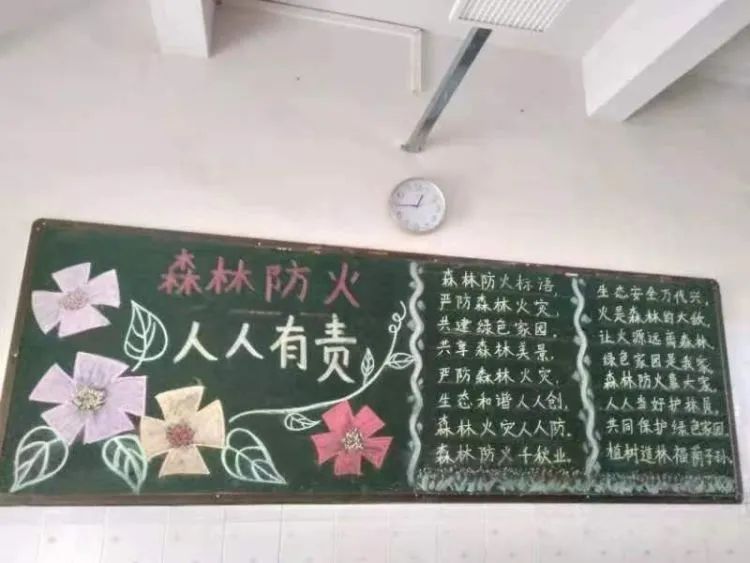 森林防火
人人有责
森林防火标语，
严防森林火灾，
共建绿色家园，
共享森林美景，
严防森林火灾，
生态和谐人人创，
森林火灾人人防，
森林防火千秋业，
生态安全万代兴，
火是森林的大敌，
让火源远离森林，
绿色家园是我家，
森林防火靠大家，
人人当好护林员，
共同保护绿色家园
植树造林福荫子孙